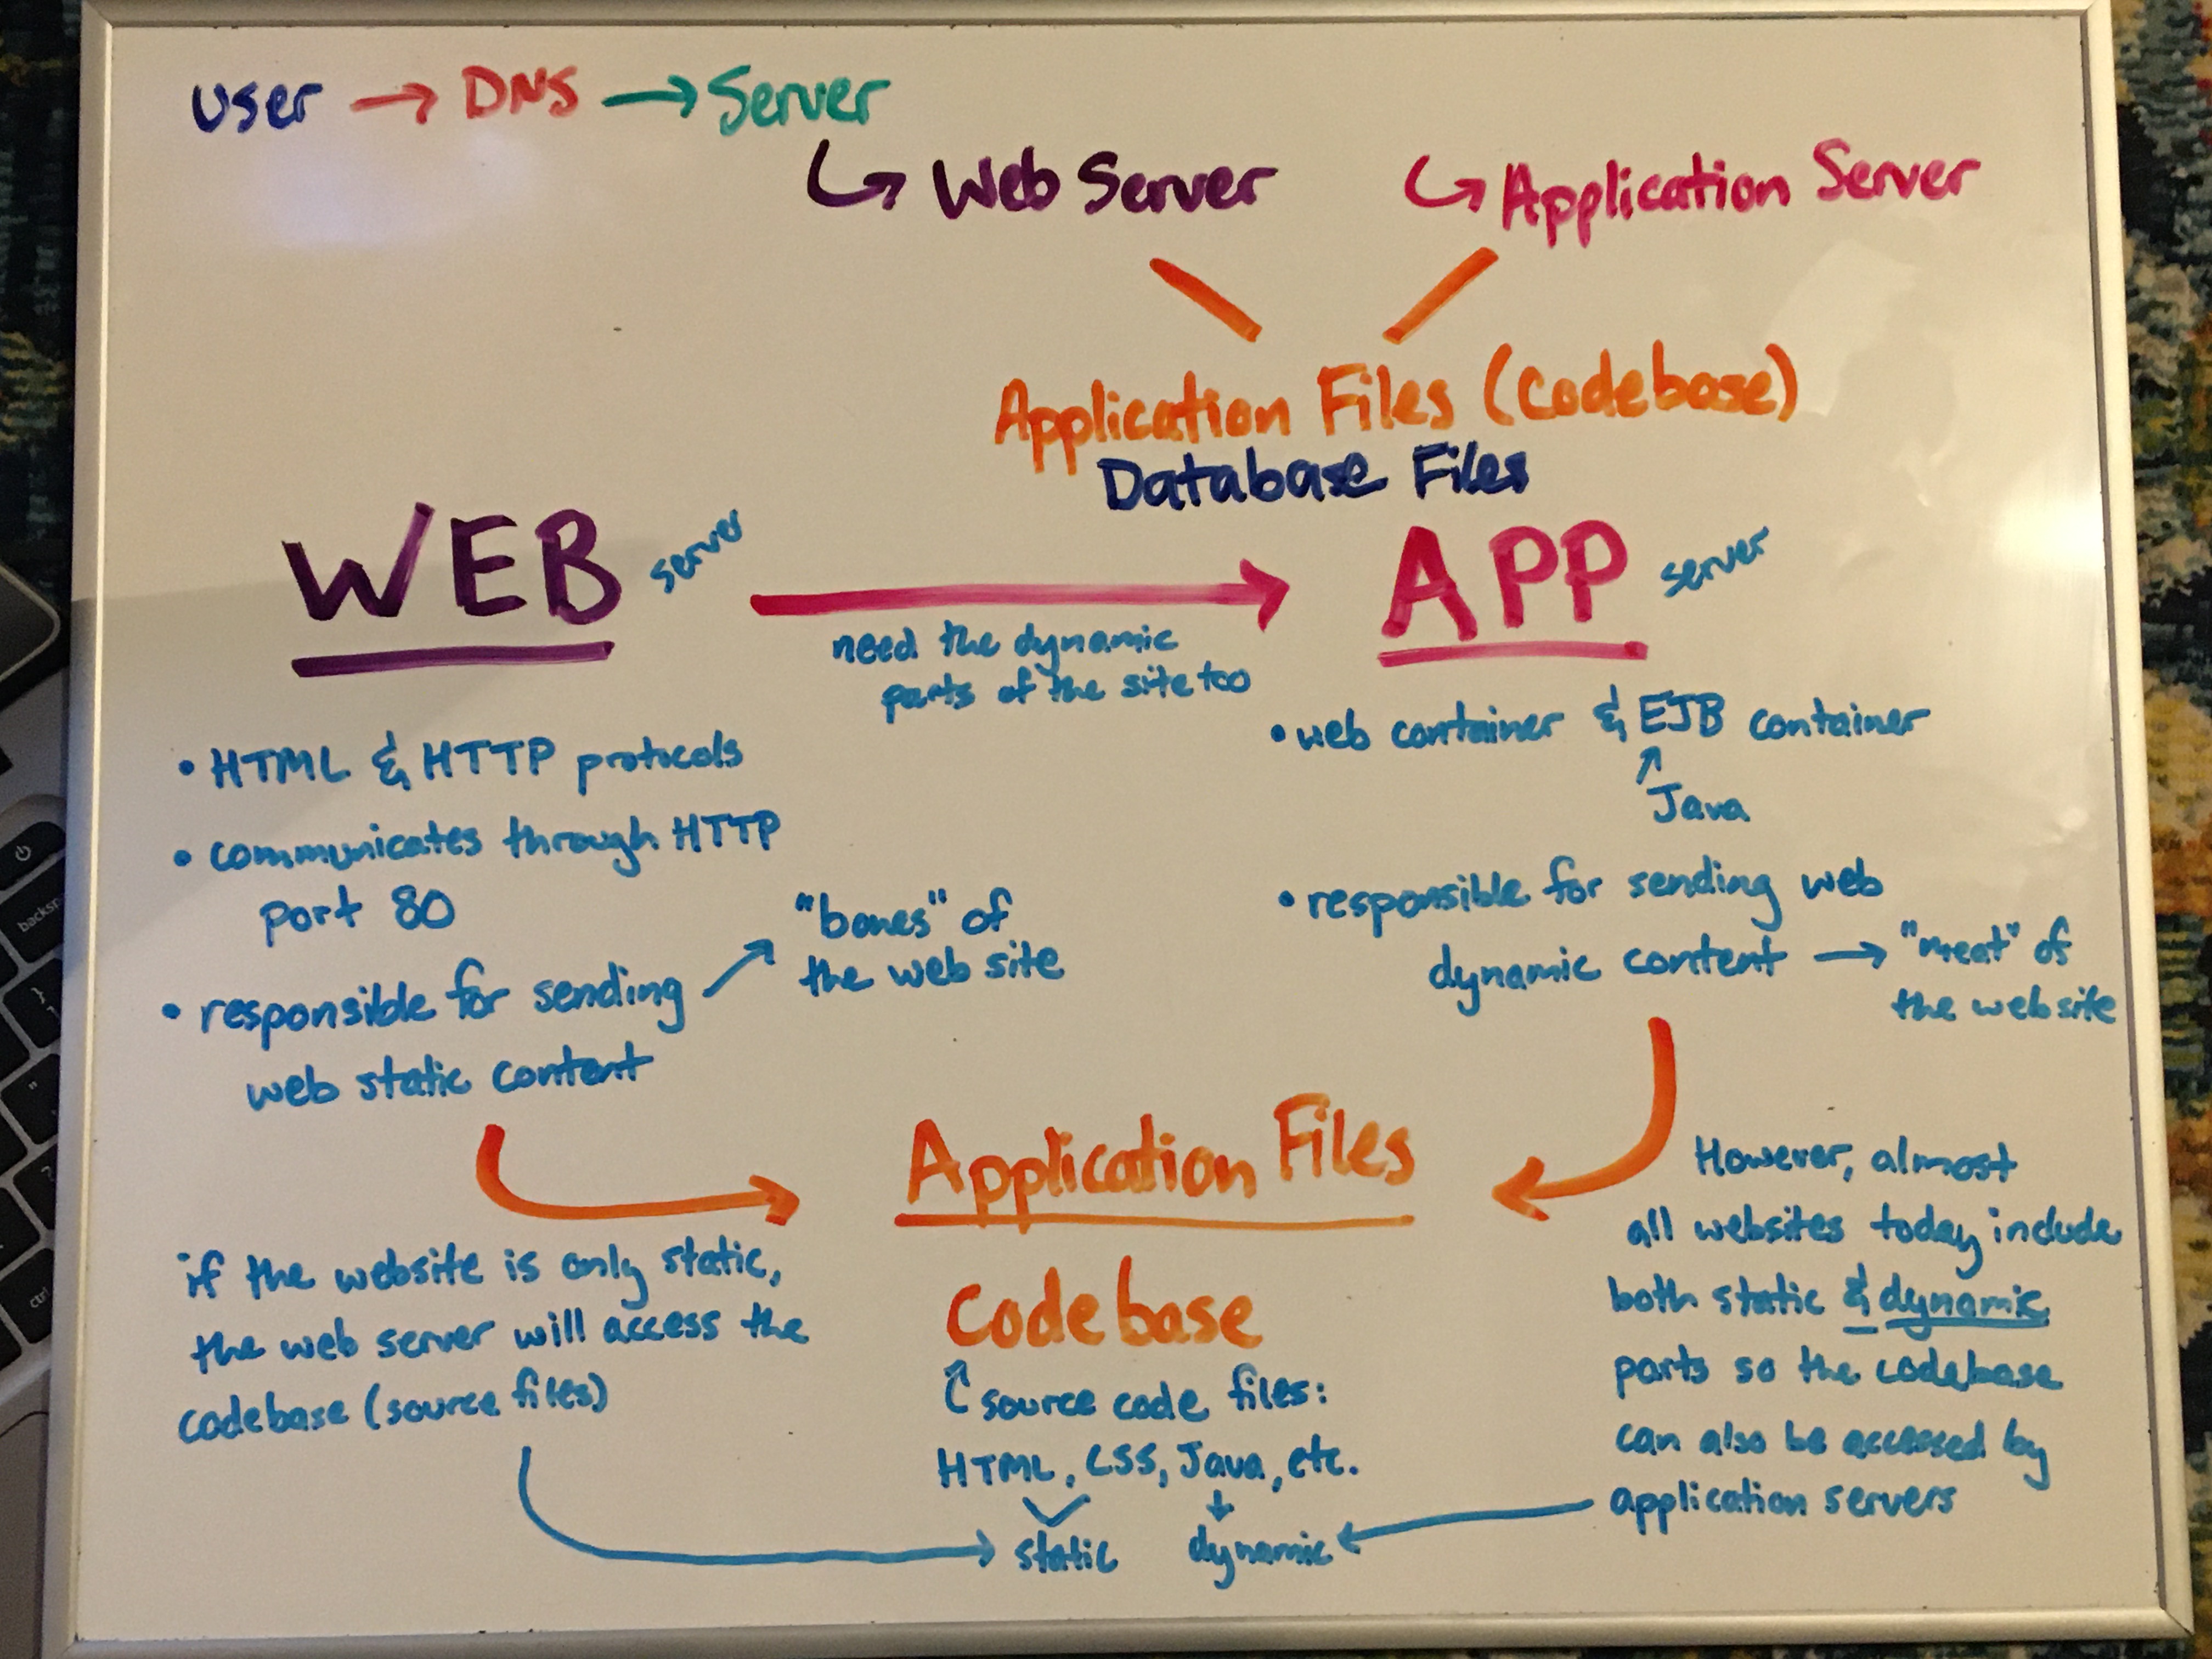 user → DNS → Server
↳ Web Server
↳ Application Server
Application Files (Codebase)
Database Files
WEB server
need the dynamic
parts of the site too
APP server
• HTML & HTTP protocols
• communicates through HTTP
port 80
• responsible for sending
web static content
"bones" of
the web site
• web container & EJB container
↑
Java
• responsible for sending web
dynamic content → "meat" of
the web site
Application Files
Codebase
source code files:
HTML, CSS, Java, etc.
static dynamic
if the website is only static,
the web server will access the
codebase (source files)
However, almost
all websites today include
both static & dynamic
parts so the codebase
can also be accessed by
application servers
backsp
ctrl